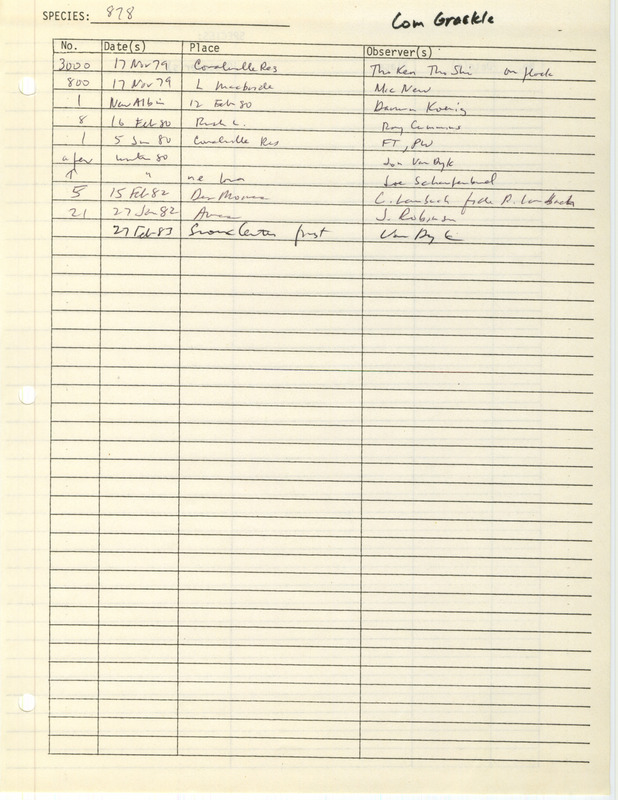 SPECIES: 878
Com Grackle
No. Date(s) Place Observer(s)
3000 17 Nov 79 Coralville Res Tho Ken Tho Shi on flock
800 17 Nov 79 L Macbride Mic New
1 New Albin 12 Feb 80 Darwin Koenig
8 16 Feb 80 Rush L. Ray Cummins
1 5 Jan 80 Coralville Res FT, PW
a few winter 80 Jon Van Dyk
↑ " ne Iowa Joe Schaufenbuel
5 15 Feb 82 Des Moines C. fide R.
21 27 Jan 82 Ames J. Robinson
27 Feb 83 Sioux Center first Van Dyk